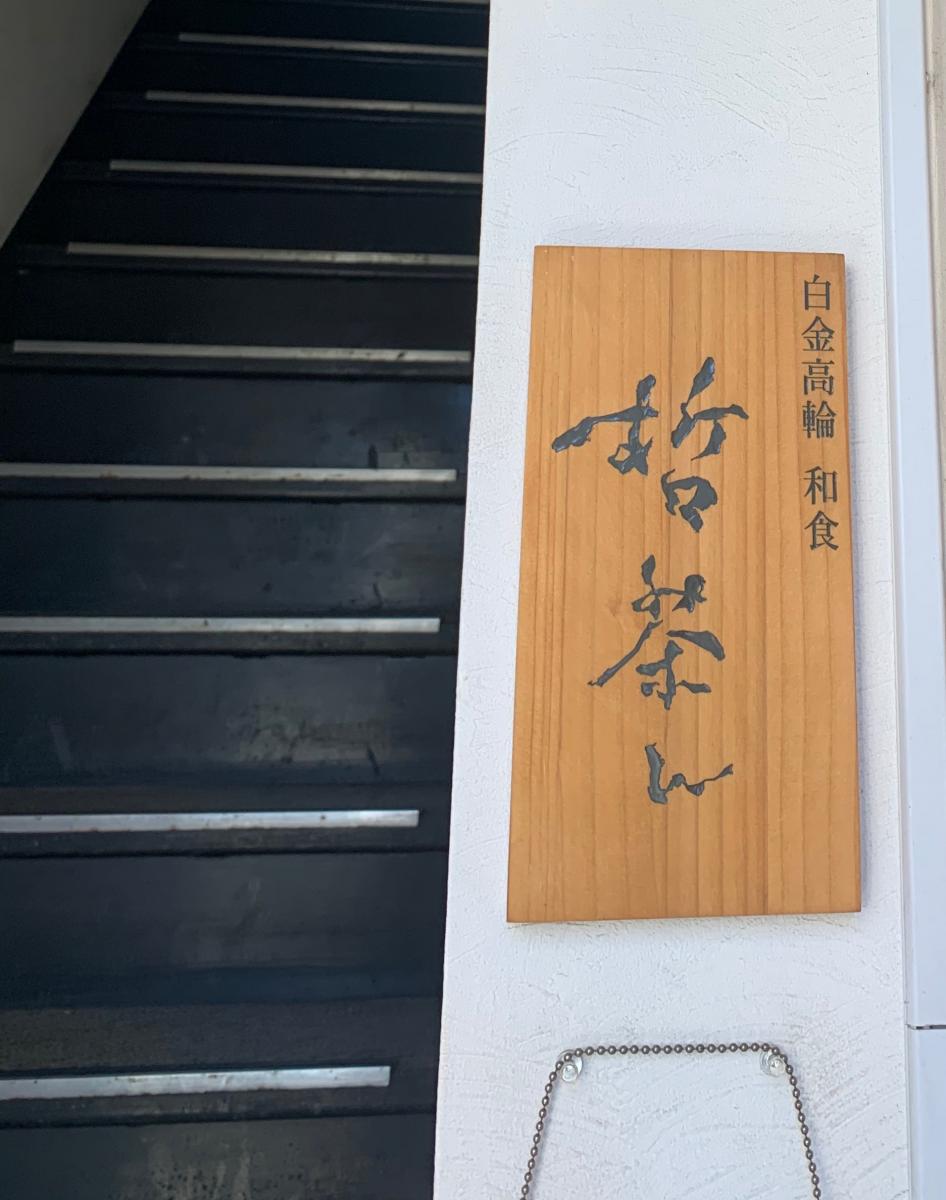 白金高輪 和食
哲茶ん